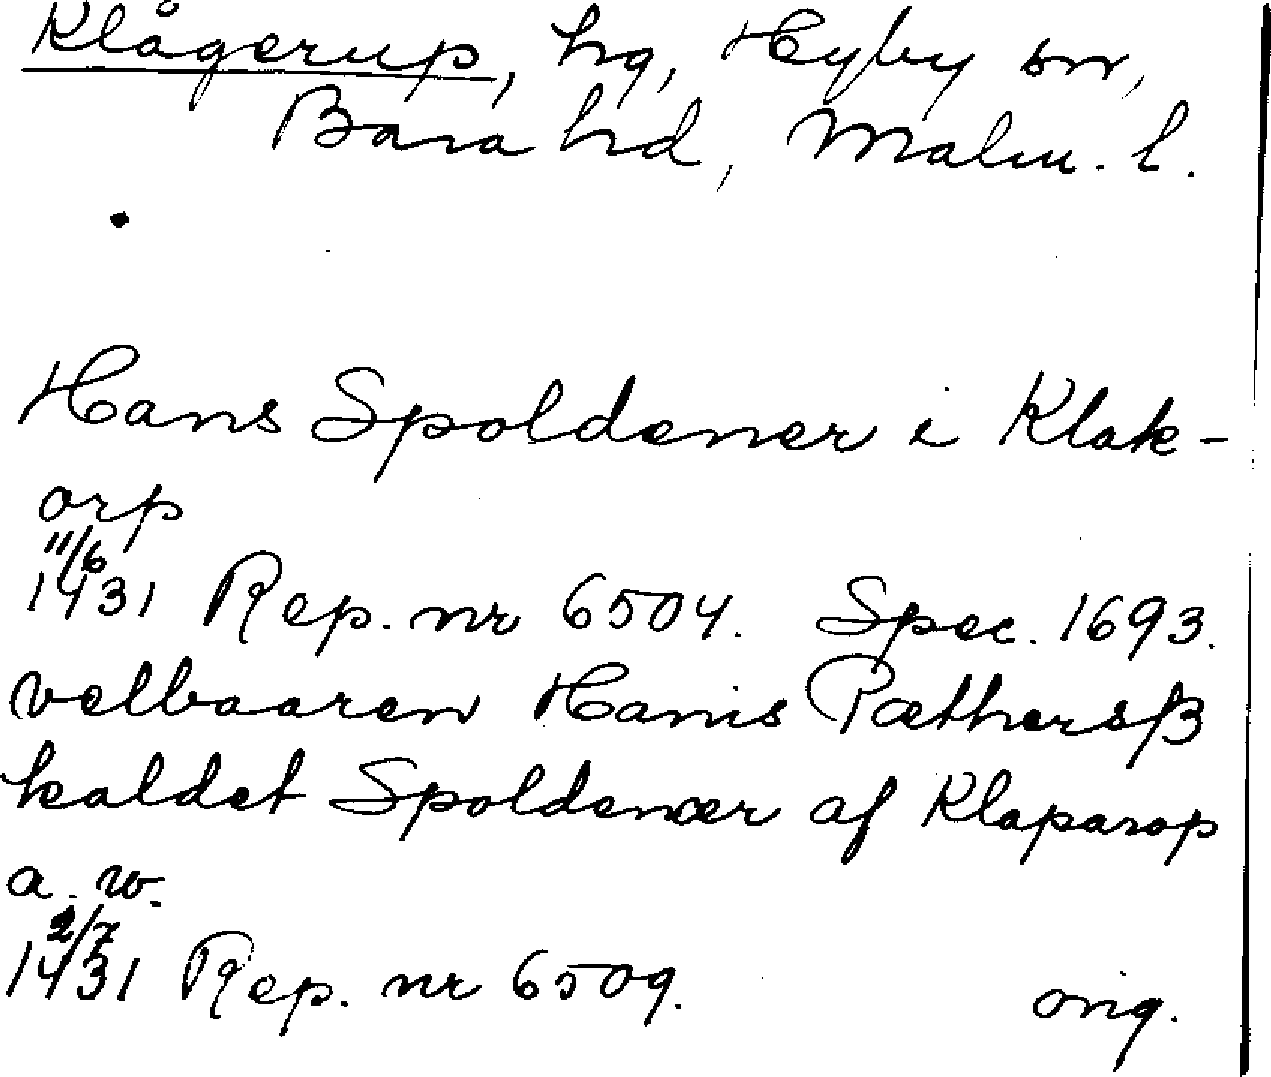 Klågerup, hg, Hyby sn,
Bara hd, Malm. l.
Hans Spoldener i Klak-
orp
11/6
1431 Rep. nr 6504. Spec. 1693.
velbaaren Hanis Pæthersß
kaldet Spoldenær af Klaparop
a. w.
2/7
1431 Rep. nr 6509. orig.